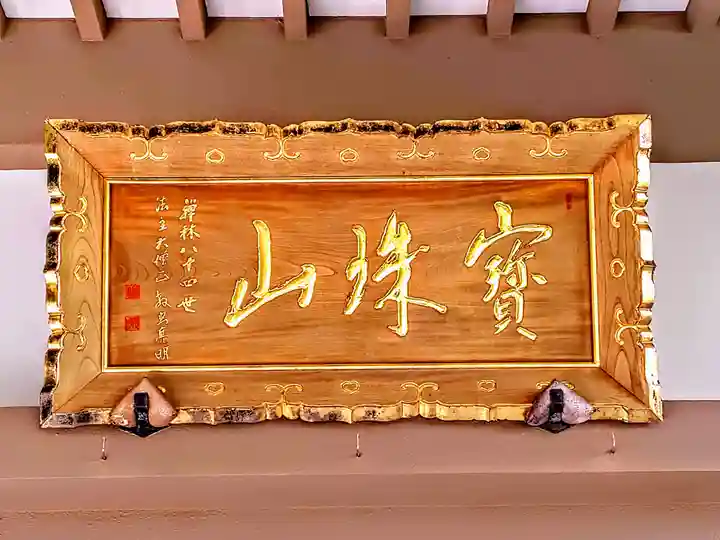 寳珠山
禅林八十四世
法主大僧正